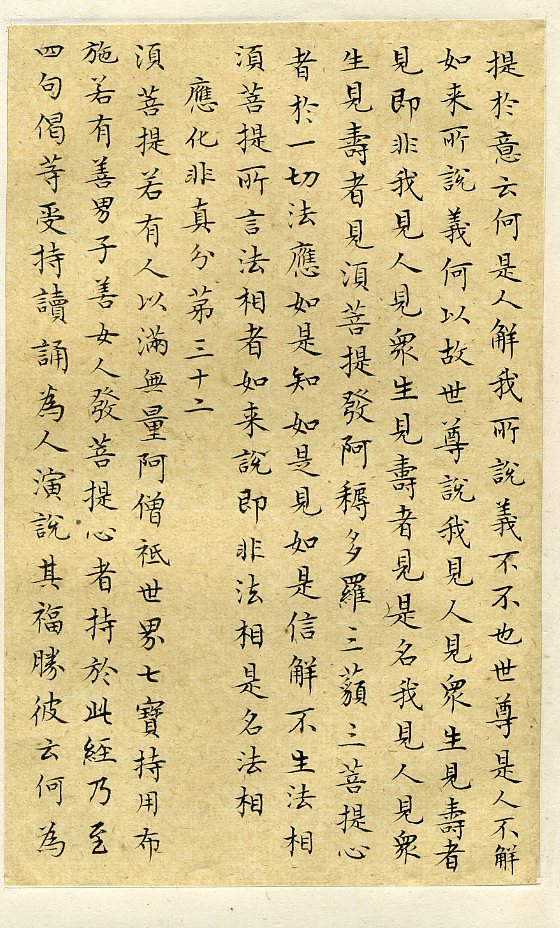 提於意云何是人解我所說義不不也世尊是人不解
如来所說義何以故世尊說我見人見衆生見壽者
見即非我見人見衆生見壽者見是名我見人見衆
生見壽者見湏菩提發阿耨多羅三藐三菩提心
者於一切法應如是知如是見如是信解不生法相
湏菩提所言法相者如来說即非法相是名法相
應化非真分苐三十二
湏菩提若有人以滿無量阿僧祇世界七寶持用布
施若有善男子善女人發菩提心者持於此經乃至
四句偈等受持讀誦為人演說其福勝彼云何為